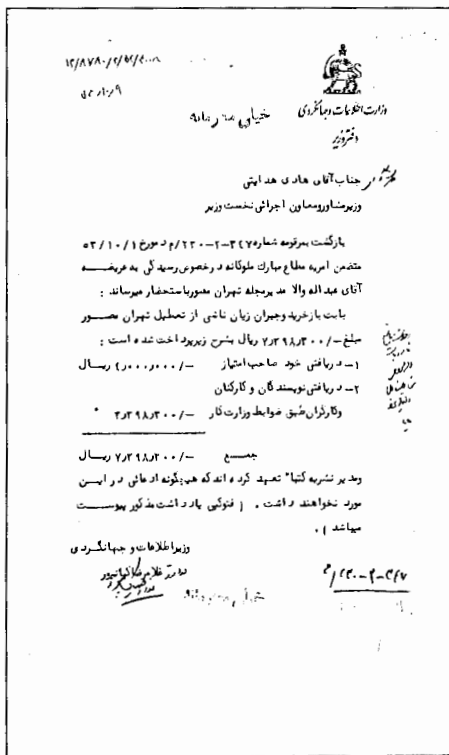 ۱۲/۸۷۸۰/۲/۵۲/۴۰۰۸
وزارت اطلاعات و جهانگردی
دفتر وزیر
خیلی محرمانه
جناب آقای هادی هدایتی
وزیر مشاور و معاون اجرائی نخست وزیر
بازگشت بمرقومه شماره ۳۴۷-۲-۲۲۰/م د مورخ ۵۳/۱۰/۱
متضمن امریه مطاع مبارك ملوکانه درخصوص رسیدگی به عریضه
آقای عبداله والا مدیر مجله تهران مصور باستحضار میرساند :
بابت بازخرید و جبران زیان ناشی از تعطیل تهران مصور
مبلغ -/۷٫۲۹۸٫۳۰۰ ریال بشرح زیر پرداخت شده است :
۱- دریافتی خود صاحب امتیاز -/۴٫۰۰۰٫۰۰۰ ریال
۲- دریافتی نویسندگان و کارکنان
وکارگران طبق ضوابط وزارت کار -/۳٫۲۹۸٫۳۰۰ "
جمع -/۷٫۲۹۸٫۳۰۰ ریال
ومدیر نشریه کتبا" تعهد کرده اند که هیچگونه ادعائی در این
مورد نخواهند داشت . ( فتوکپی یادداشت مذکور پیوست
میباشد ) .
وزیر اطلاعات و جهانگردی
غلامرضا کیانپور
خیلی محرمانه
۳۴۷-۲-۲۲۰/م